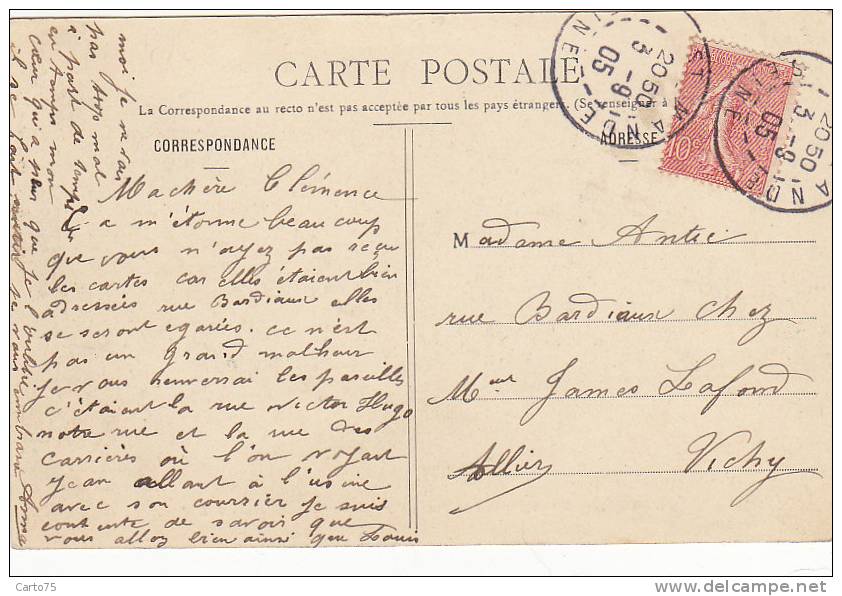 CARTE POSTALE
La Correspondance au recto n'est pas acceptée par tous les pays étrangers. (Se renseigner à
CORRESPONDANCE
ADRESSE
Ma chère Clémence
a m'étonne beaucoup
que vous n'ayez pas reçu
les cartes car elles étaient bien
adressées rue Bardiaux elles
se seront egarées. ce n'est
pas un grand malheur
je vous renverrai les pareilles
c'étaient la rue Victor Hugo
notre rue et la rue des
Carrières où l'on voyait
Jean allant à l'usine
avec son courrier je suis
contente de savoir que
vous allez bien ainsi que Louis
moi je ne vais
pas trop mal
à part de temps
en temps mon
cœur qui a peur que je l'oublie
il se fait sentir je vous embrasse Anna
Madame Antic
rue Bardiaux chez
Mme James Lafond
Vichy
Allier
10c
20 50
3 -9
05
20 50
3 -9
05
Carto75
www.delcampe.net